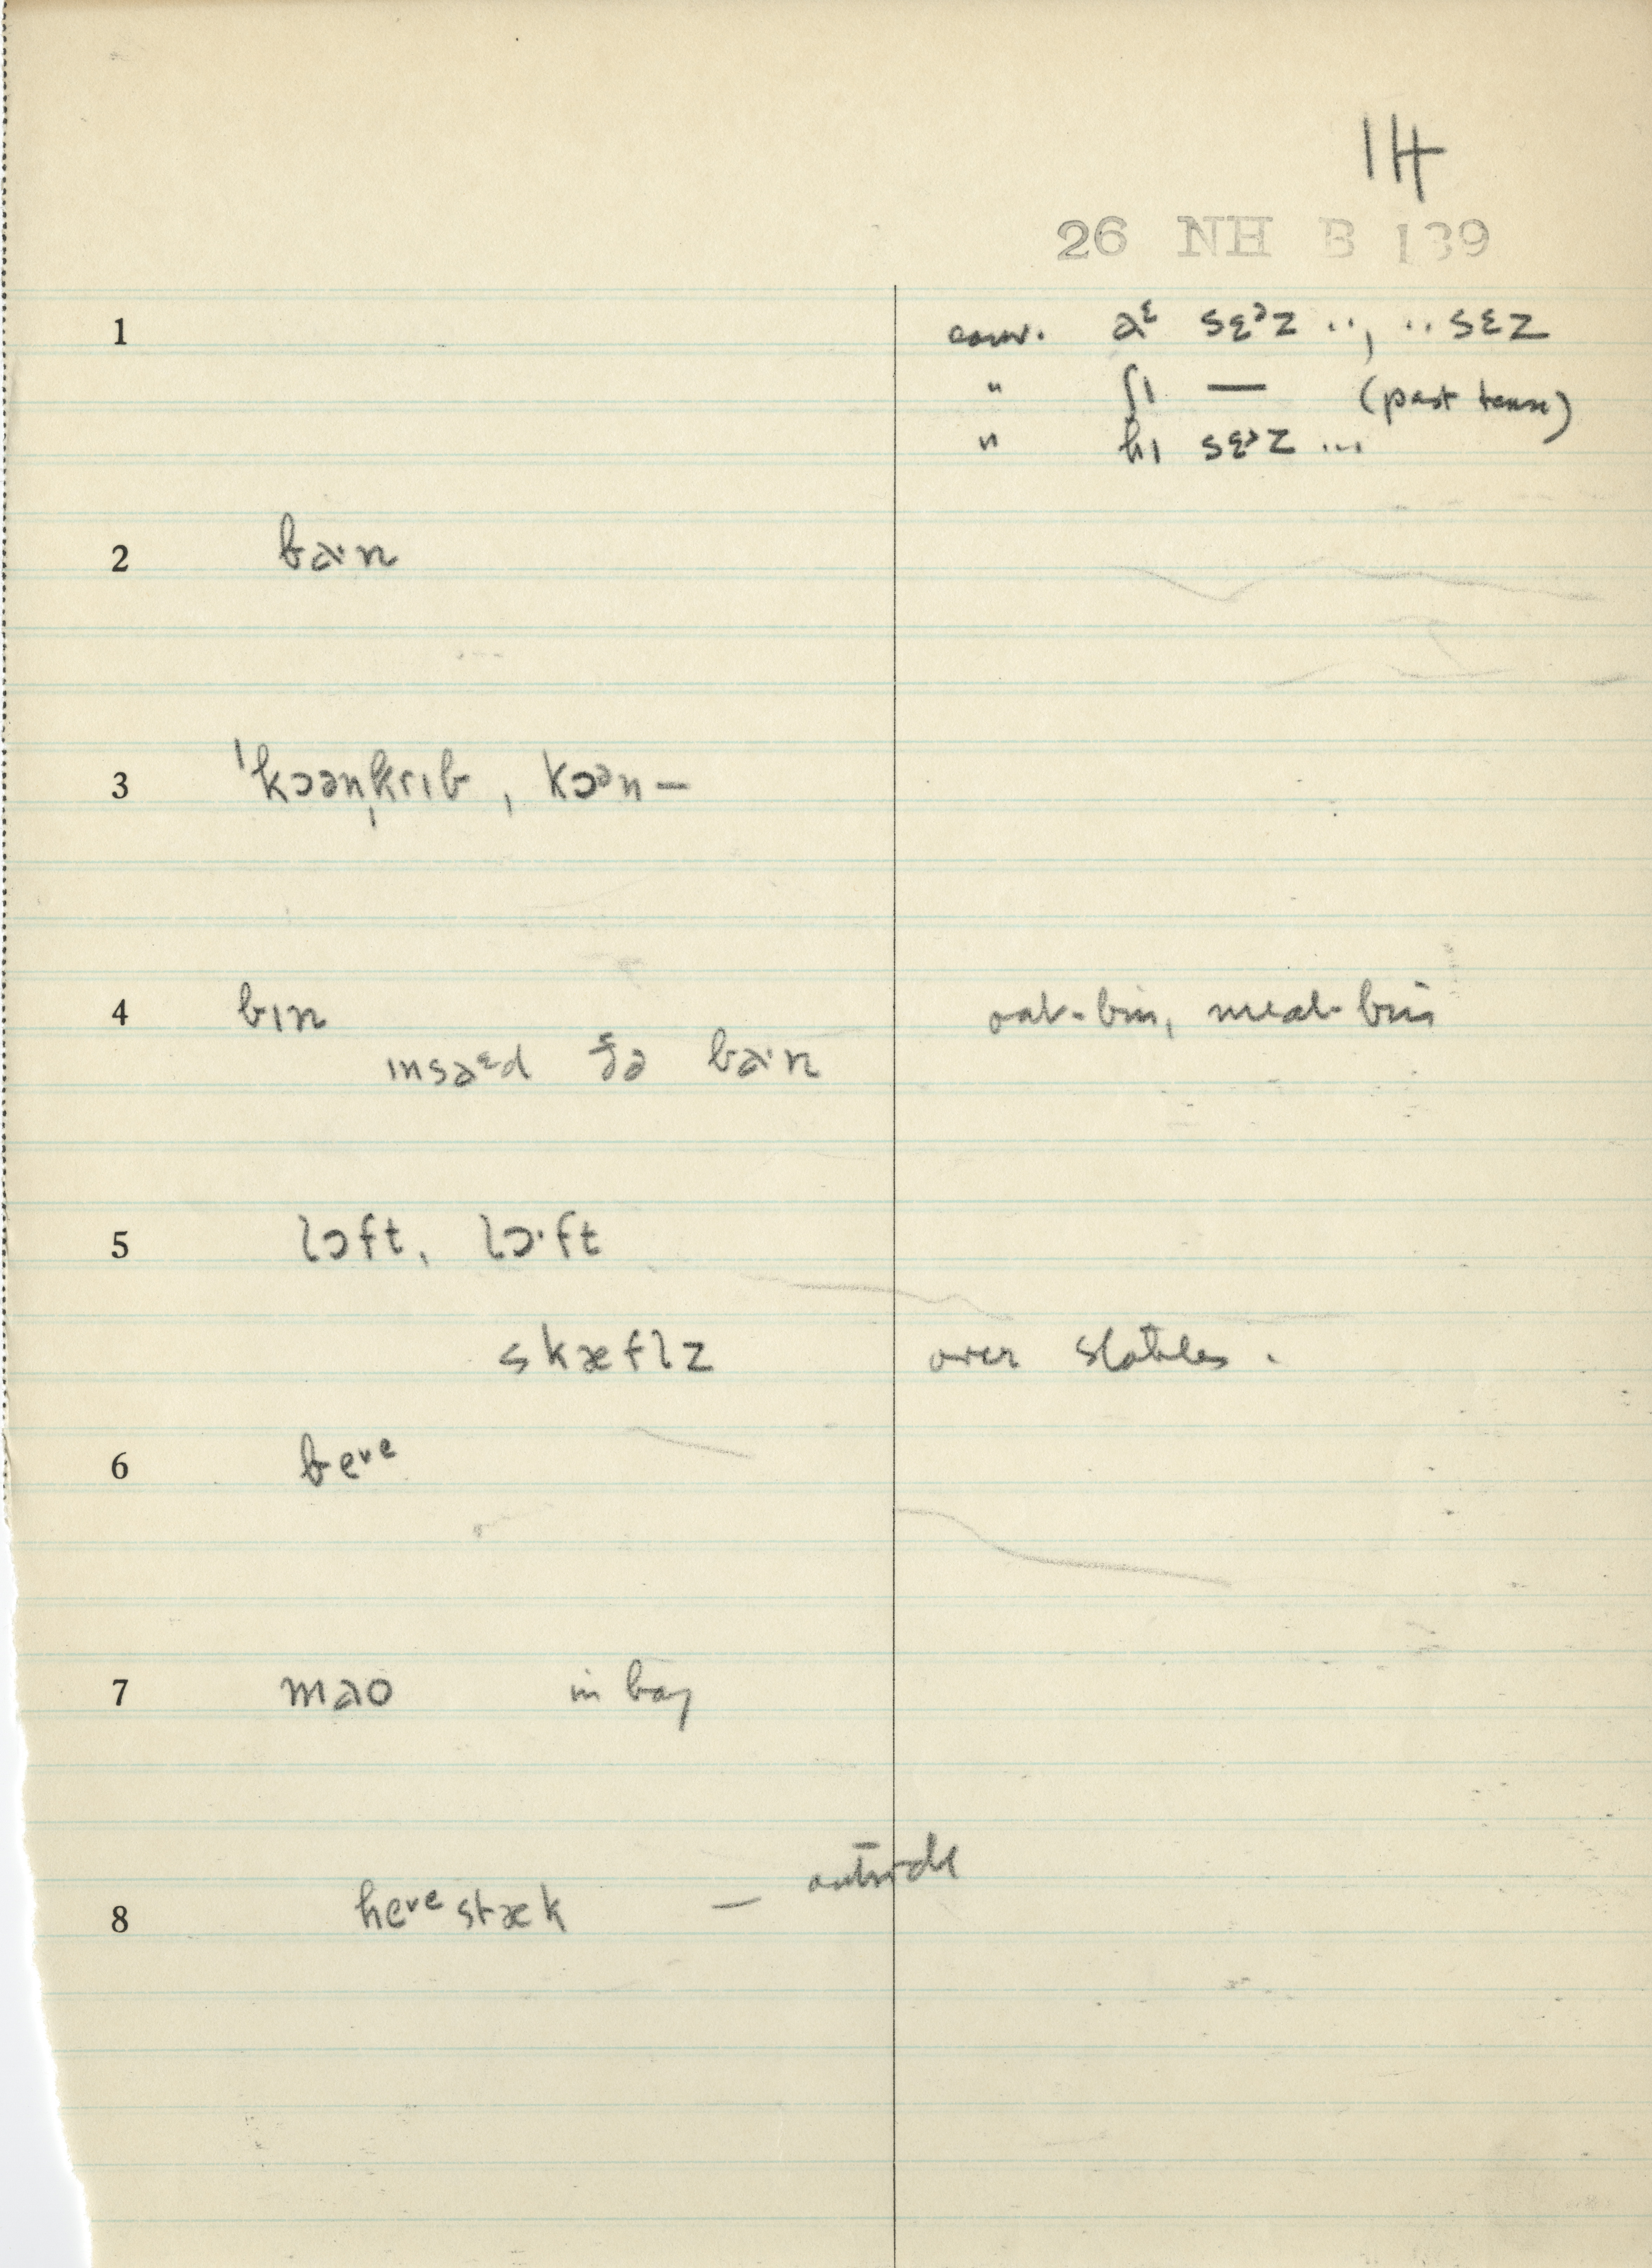 14
26 NH B 139
1 conv. aᵋ sɛᵊz .., .. sɛz
" ʃɪ — (past tense)
" hɪ sɛᵊz ...
2 ba·n
3 ˈkɔənˌkrɪb, kɔən—
4 bɪn oat-bin, meal-bin
ɪnsaᵋd ðə ba·n
5 lɔft, lɔ·ft
skæflz over stables.
6 beᵛᵉ
7 mao in bay
8 heᵛᵉstæk — outside